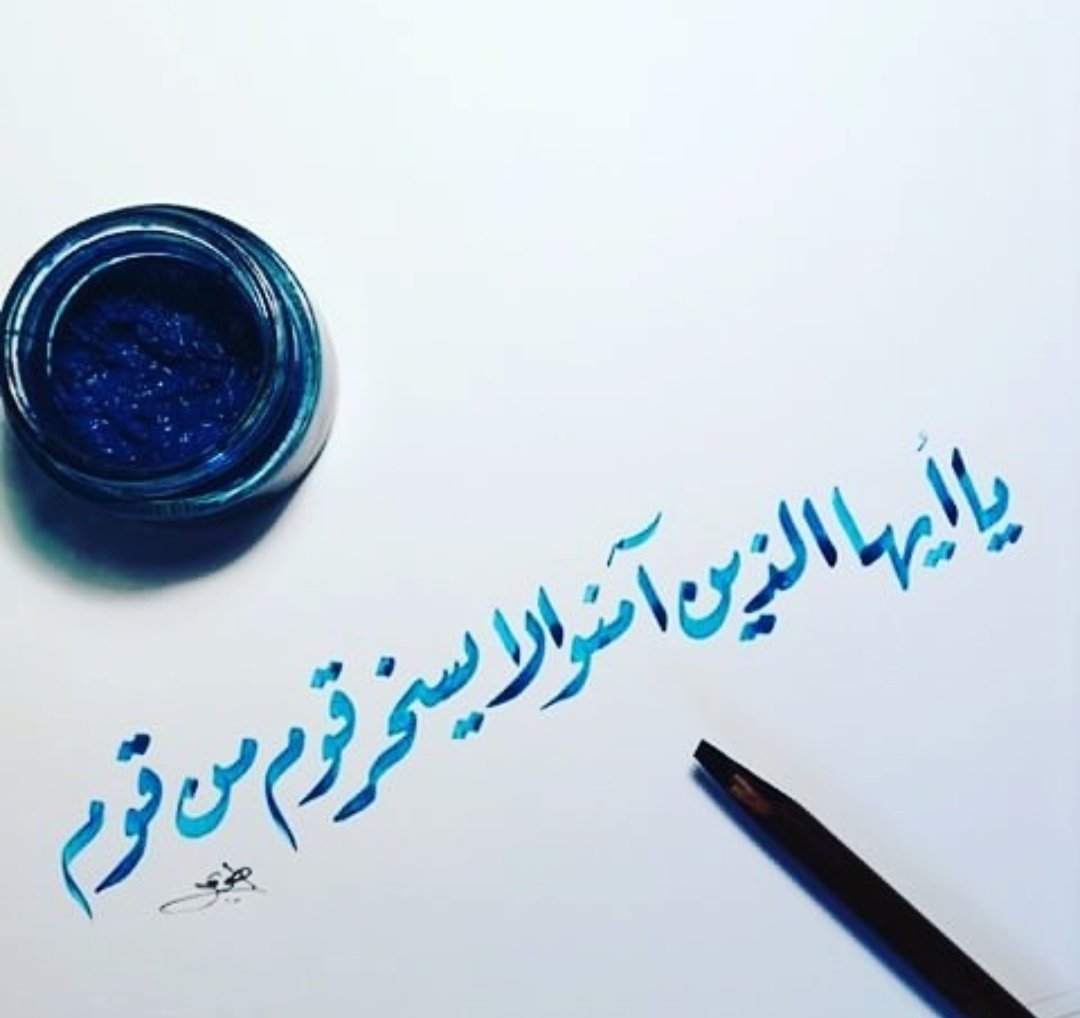 يا أيها الذين آمنوا لا يسخر قوم من قوم